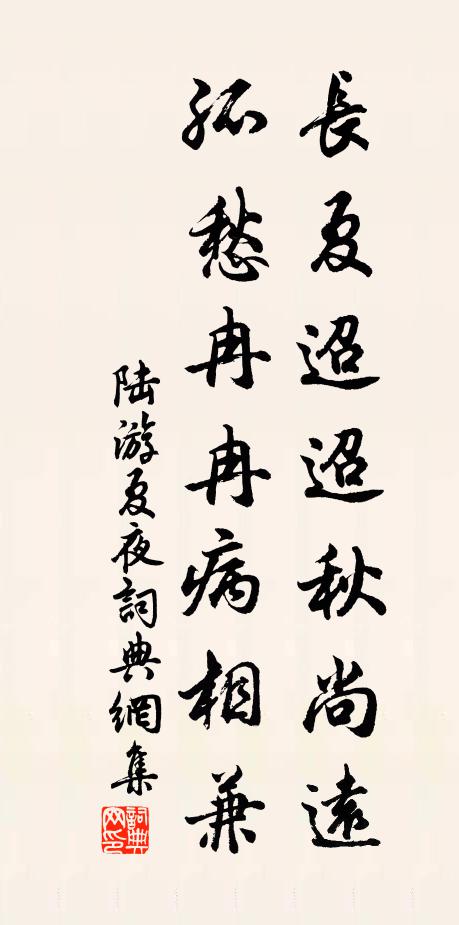 長夏迢迢秋尚遠
孤愁冉冉病相兼
陆游夏夜詞典網集
詞典网印